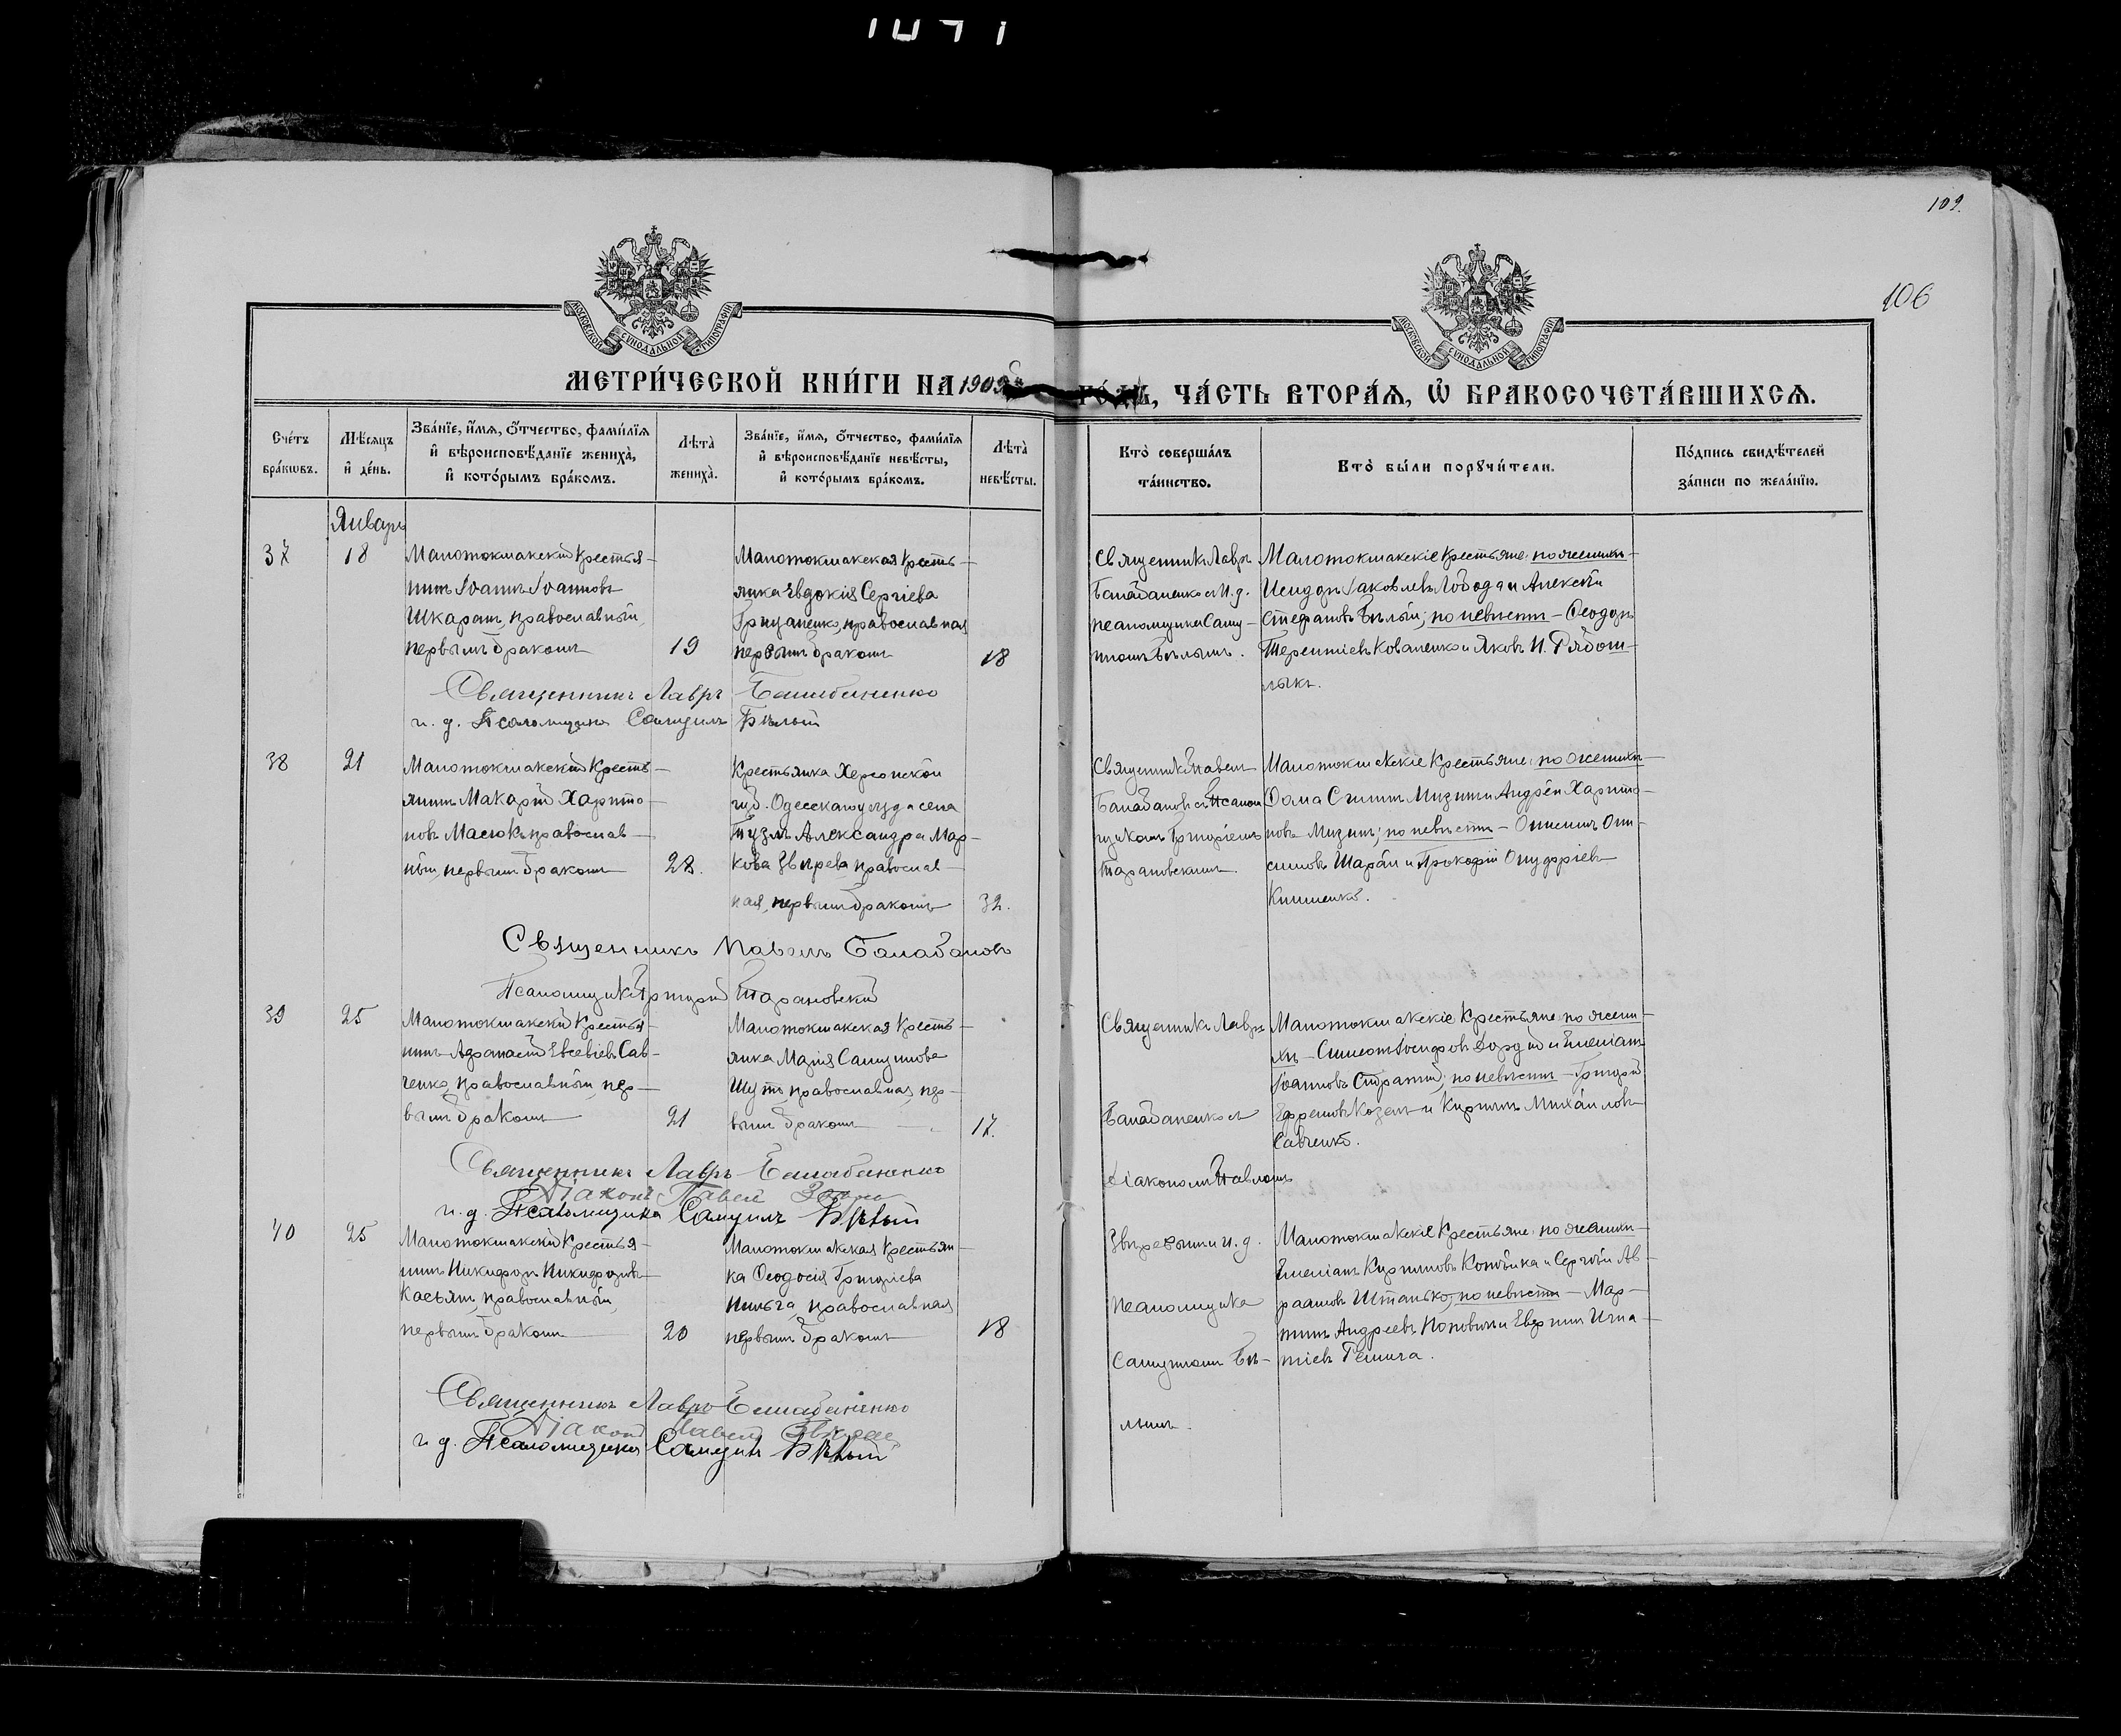 109.
106
МОСКОВСКОЙ СѴНОДАЛЬНОЙ ТИПОГРАФІИ
МОСКОВСКОЙ СѴНОДАЛЬНОЙ ТИПОГРАФІИ
МЕТРИ́ЧЕСКОЙ КНИ́ГИ НА 1909
ГО́ДЪ, ЧА́СТЬ ВТОРА́Я, Ѡ҆ БРАКОСОЧЕТА́ВШИХСЯ.
Сче́тъ бра́кѡвъ.
Мѣ́сяцъ и҆ де́нь.
Зва́нїе, и҆́мя, ѻ҆́тчество, фами́лїя и҆ вѣроисповѣ́данїе жениха̀, и҆ кото́рымъ бра́комъ.
Лѣта̀ жениха̀.
Зва́нїе, и҆́мя, ѻ҆́тчество, фами́лїя и҆ вѣроисповѣ́данїе невѣ́сты, и҆ кото́рымъ бра́комъ.
Лѣта̀ невѣ́сты.
Кто̀ соверша́лъ та́инство.
Кто̀ бы́ли порꙋчи́тели.
По́дпись свидѣ́телей за́писи по жела́нїю.
Январь
37
18
Малотокмакскій крестья-
нинъ Іоаннъ Іоанновъ
Шкаранъ, православный,
первымъ бракомъ
19
Малотокмакская кресть-
янка Евдокія Сергіева
Грицаненко, православная
первымъ бракомъ
18
Священникъ Лавръ
Балабаненко съ и. д.
псаломщика Саму-
иломъ Бѣлымъ.
Малотокмакскіе крестьяне: по женихѣ-
Исидоръ Іаковлевъ Лобода и Алексѣй
Стефановъ Бѣлый; по невѣстѣ - Ѳеодоръ
Терентіевъ Коваленко и Яковъ И. Рябош-
лыкъ.
Священникъ Лавръ Балабаненко
и. д. Псаломщика Самуилъ Бѣлый
38
21
Малотокмакскій кресть-
янинъ Макарій Харито-
новъ Масюкъ, православ-
ный, первымъ бракомъ
28.
Крестьянка Херсонской
губ. Одесскаго уѣзда села
Тузлъ Александра Мар-
кова Звѣрева, православ-
ная, первымъ бракомъ
32.
Священникъ Павелъ
Балабановъ съ псалом
щикомъ Григоріемъ
Тарановскимъ.
Малотокмакскіе крестьяне: по женихѣ-
Ѳома Мизинъ и Андрей Харито-
новъ Мизинъ; по невѣстѣ - Онисимъ Они-
симовъ Шарай и Прокофій Онуфріевъ
Книшенко.
Священникъ Павелъ Балабановъ
Псаломщикъ Григорій Тарановскій
39
25
Малотокмакскій крестья-
нинъ Аѳанасій Евсевіевъ Сав-
ченко, православный, пер-
вымъ бракомъ
21
Малотокмакская кресть-
янка Марія Самуилова
Шутъ, православная, пер-
вымъ бракомъ
17.
Священникъ Лавръ
Балабаненко съ
Діакономъ Павломъ
Малотокмакскіе крестьяне: по жени-
хѣ - Симеонъ Іосифовъ и Емеліанъ
Іоанновъ Страшій; по невѣстѣ - Григорій
Ефремовъ Козелъ и Кириллъ Михайловъ
Савченко.
Священникъ Лавръ Балабаненко
Діаконъ Павелъ
и. д. Псаломщика Самуилъ Бѣлый
40
25
Малотокмакскій крестья-
нинъ Никифоръ Никифоровъ
Касьянъ, православный,
первымъ бракомъ
20
Малотокмакская крестьян-
ка Ѳеодосія Григоріева
православная
первымъ бракомъ
18
Звѣревымъ и и. д.
псаломщика
Самуиломъ Бѣ-
лымъ.
Малотокмакскіе крестьяне: по женихѣ-
Емеліанъ Кирилловъ Копѣйка и Сергѣй Ав-
раамовъ Штанько; по невѣстѣ - Мар-
тинъ Андреевъ Поповичъ и Игна-
тіевъ
Священникъ Лавръ Балабаненко
Діаконъ Павелъ Звѣревъ
и. д. Псаломщика Самуилъ Бѣлый